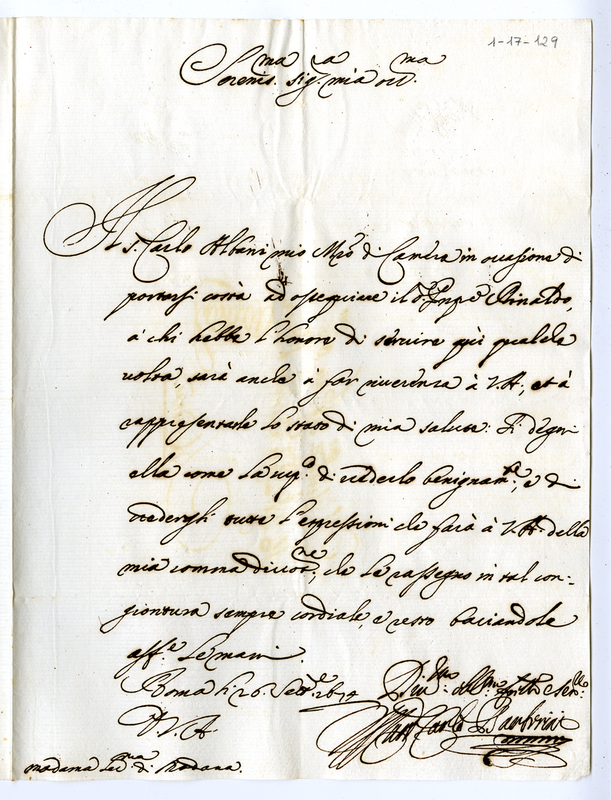 1-17-129
Serenis.ma Sig.ra mia oss.ma
Il S. Carlo Albani mio M.ro di Camera in occasione di
portarsi costà ad ossequiare il S. Prnpe Rinaldo,
à chi hebbe l'honore di servire quì qualche
volta, sarà anche à far riverenza à V.A., et à
rappresentarle lo stato di mia salute. Si degni
ella come la sup.co di vederlo benignam.te, e di
crederghi tutte l'espressioni che farà à V.A. della
mia somma divot.ne, che le rassegno in tal con-
giontura sempre cordiale, e resto baciandole
aff.e le mani.
Roma li 26. Sett.e 1674
D. V. A.
Carlo Barberini
Madama Ser.ma di Modana.